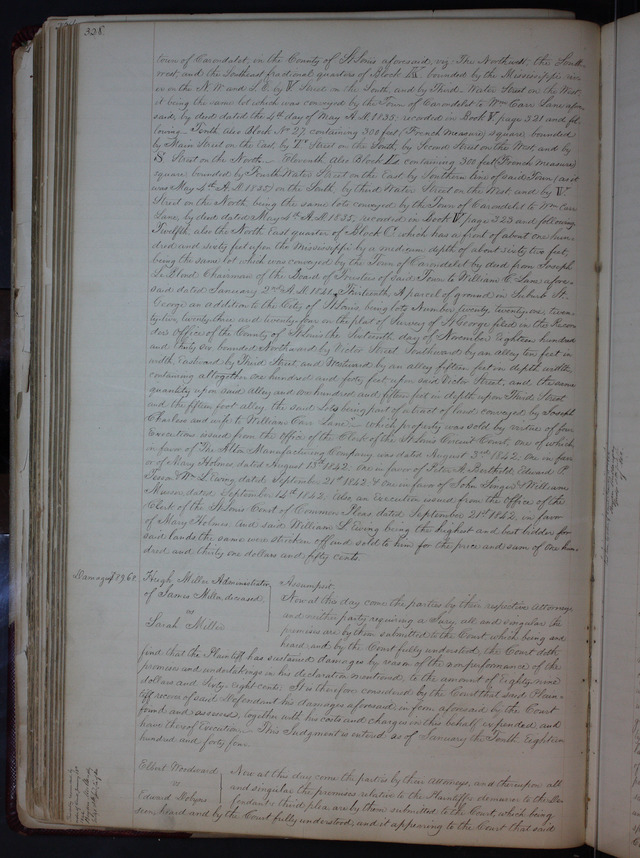 328.
town of Carondelet, in the County of St Louis aforesaid, viz: The Northwest the South
west, and the Southeast fractional quarters of Block IX. bounded by the Mississippi riv
er on the N. W. and S. E. by V Street on the South, and by Third Water Street on the West,
it being the same lot which was conveyed by the Town of Carondelet to Wm Carr Lane afore
said, by deed dated the 4th day of May A.D. 1835, recorded in Book V page 321 and fol
lowing. Tenth Also Block No 27. containing 300 feet (French measure) square bounded
by Main Street on the East, by T. Street on the South, by Second Street on the West, and by
S Street on the North. Eleventh Also Block containing 300 feet (French measure)
square bounded by Fourth Water Street on the East by Southern line of said Town (as it
was May 4th A.D. 1835) on the South, by third Water Street on the West, and by V
Street on the North, being the same lots conveyed by the Town of Carondelet to Wm Carr
Lane, by deed dated May 4th A.D. 1835, recorded in Book V, page 323 and following
Twelfth, also the North East quarter of Block C. which has a front of about one hun
dred and sixty feet upon the Mississippi by a medium depth of about sixty two feet,
being the same lot which was conveyed by the Town of Carondelet by deed from Joseph
Le Blond Chairman of the Board of Trustees of said Town to William C. Lane afore
said dated January 2nd A.D. 1841. Thirteenth, A parcel of ground in Suburb St.
George an addition to the City of St Louis, being lots Number twenty, twenty-one, twen
ty-two, twenty-three and twenty-four on the plat of Survey of St George filed in the Recor
ders Office of the County of St Louis the Sixteenth day of November Eighteen hundred
and thirty six, bounded Northward by Victor Street Southward by an alley ten feet in
width, Eastward by Third Street, and Westward by an alley fifteen feet in depth width,
containing altogether one hundred and forty feet upon said Victor Street, and the same
quantity upon said alley and one hundred and fifteen feet in depth upon Third Street
and the fifteen foot alley, the said Lots being part of a tract of land conveyed by Joseph
Charless and wife to William Carr Lane — which property was sold by virtue of four
Executions issued from the Office of the Clerk of the St Louis Circuit Court, one of which
in favor of The Alton Manufacturing Company was dated August 3rd 1842. One in fav
or of Mary Holmes, dated August 13th 1842. One in favor of Peter A. Berthold, Edward P.
Tesson & Wm L. Ewing dated September 21st 1842. & One in favor of John Singer & William
dated September 14th 1842. Also an Execution issued from the Office of the
Clerk of the St Louis Court of Common Pleas dated September 21st 1842, in favor
of Mary Holmes. And said William L Ewing being the highest and best bidder for
said lands the same were stricken off and sold to him for the price and sum of One hun
dred and thirty one dollars and fifty cents.
Damages $89.68
Hugh Miller Administrator
of James Miller deceased
vs
Sarah Miller
Assumpsit.
Now at this day come the parties by their respective attorneys
and neither party requiring a Jury, all and singular the
premises are by them submitted to the Court which being seen
heard and by the Court fully understood, the Court doth
find that the Plaintiff has sustained damages by reason of the nonperformance of the
promises and undertakings in his declaration mentioned, to the amount of Eighty nine
dollars and Sixty eight cents. It is therefore considered by the Court that said Plain
tiff recover of said Defendant his damages aforesaid in form aforesaid by the Court
found and assessed, together with his costs and charges in this behalf expended, and
have thereof Execution. This Judgment is entered as of January the Tenth Eighteen
hundred and forty four.
Elbert Woodward
vs
Edward Mobyns
Now at this day come the parties by their Attorneys, and thereupon all
and singular the premises relative to the Plaintiffs demurrer to the De
fendants third plea are by them submitted to the Court, which being
seen, heard and by the Court fully understood, and it appearing to the Court that said